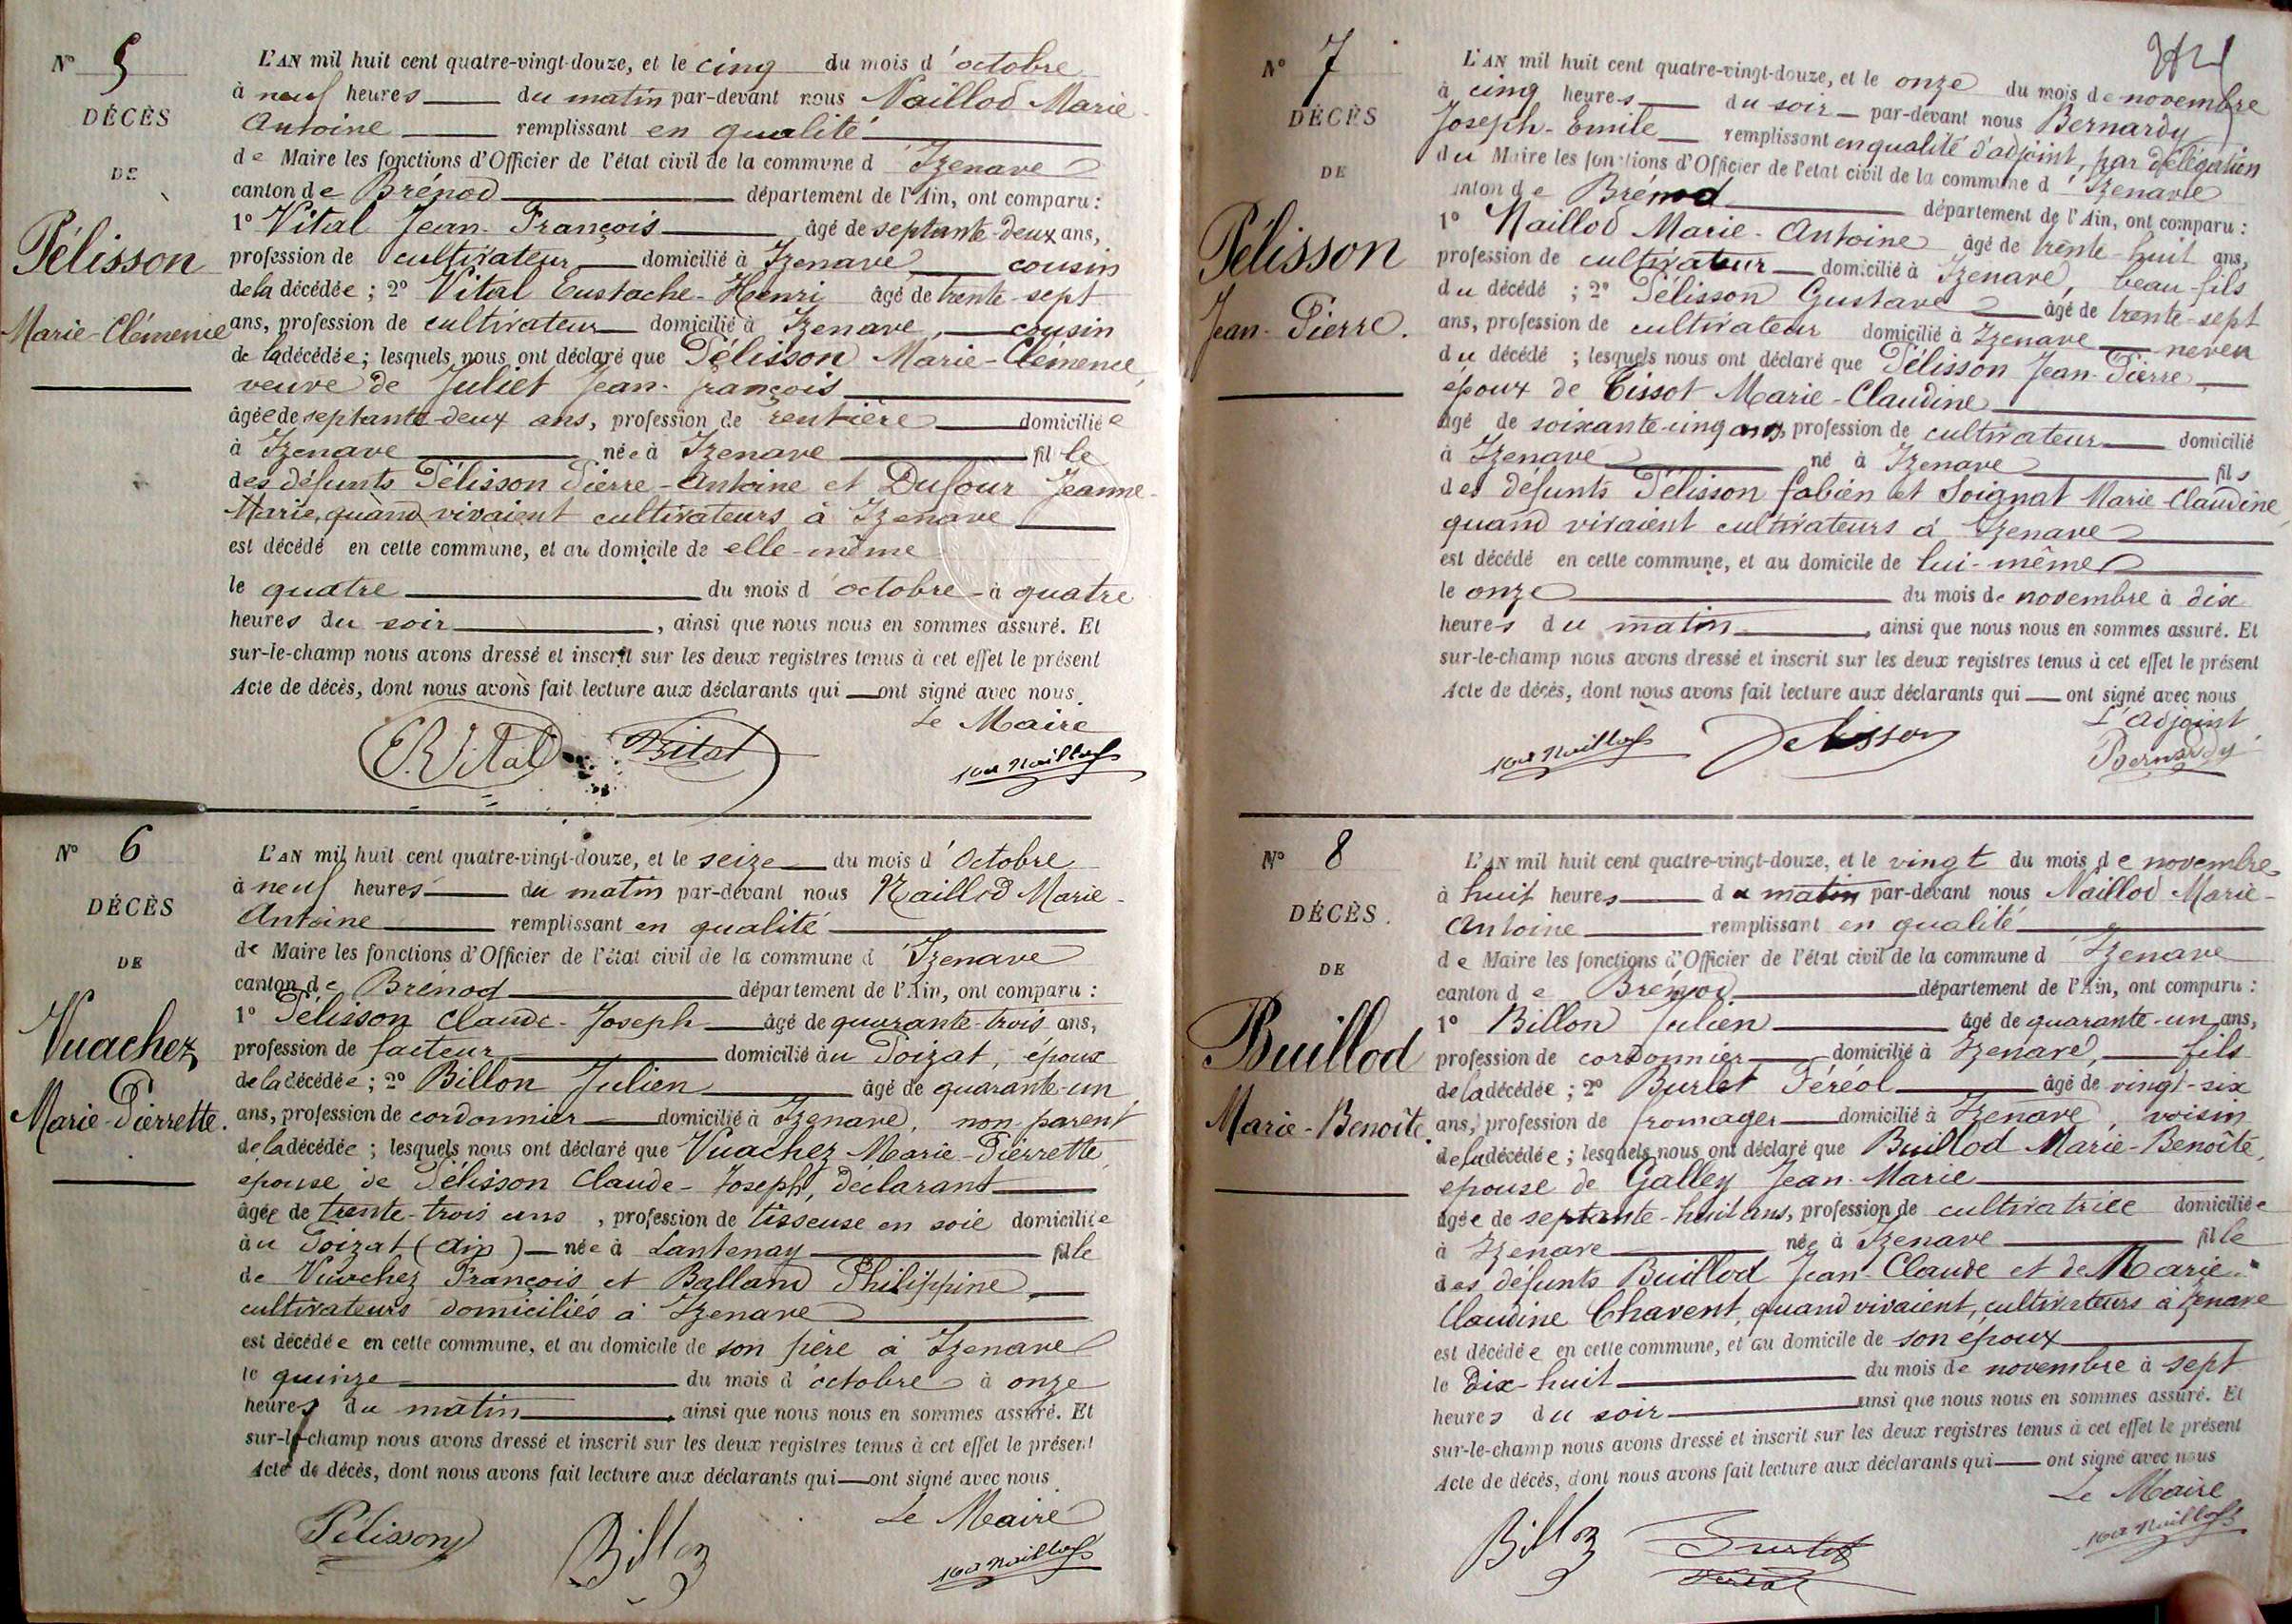 N° 5
DÉCÈS
DE
Pélisson
Marie-Clémence
L'AN mil huit cent quatre-vingt-douze, et le cinq du mois d'octobre
à neuf heures du matin par-devant nous Naillod Marie-
Antoine remplissant en qualité
de Maire les fonctions d'Officier de l'état civil de la commune d'Izenave
canton de Brénod département de l'Ain, ont comparu :
1° Vital Jean-François âgé de septante-deux ans,
profession de cultivateur domicilié à Izenave cousin
de la décédée ; 2° Vital Eustache-Henri âgé de trente-sept
ans, profession de cultivateur domicilié à Izenave, cousin
de la décédée ; lesquels nous ont déclaré que Pélisson Marie-Clémence,
veuve de Juliet Jean-François
âgée de septante-deux ans, profession de rentière domiciliée
à Izenave née à Izenave fille
des défunts Pélisson Pierre-Antoine et Dufour Jeanne-
Marie, quand vivaient cultivateurs à Izenave
est décédé en cette commune, et au domicile de elle-même
le quatre du mois d'octobre à quatre
heures du soir, ainsi que nous nous en sommes assuré. Et
sur-le-champ nous avons dressé et inscrit sur les deux registres tenus à cet effet le présent
Acte de décès, dont nous avons fait lecture aux déclarants qui ont signé avec nous.
Le Maire
E. Vital Vital Naillod
N° 6
DÉCÈS
DE
Vuachez
Marie-Pierrette.
L'AN mil huit cent quatre-vingt-douze, et le seize du mois d'Octobre
à neuf heures du matin par-devant nous Naillod Marie-
Antoine remplissant en qualité
de Maire les fonctions d'Officier de l'état civil de la commune d'Izenave
canton de Brénod département de l'Ain, ont comparu :
1° Pélisson Claude-Joseph âgé de quarante-trois ans,
profession de facteur domicilié au Poizat, époux
de la décédée ; 2° Billon Julien âgé de quarante-un
ans, profession de cordonnier domicilié à Izenave, non parent
de la décédée ; lesquels nous ont déclaré que Vuachez Marie-Pierrette,
épouse de Pélisson Claude-Joseph, déclarant
âgée de trente-trois ans, profession de tisseuse en soie domiciliée
au Poizat (Ain) née à Lantenay fille
de Vuachez François et Balland Philippine,
cultivateurs domiciliés à Izenave
est décédée en cette commune, et au domicile de son père à Izenave
le quinze du mois d'octobre à onze
heures du matin, ainsi que nous nous en sommes assuré. Et
sur-le-champ nous avons dressé et inscrit sur les deux registres tenus à cet effet le présent
Acte de décès, dont nous avons fait lecture aux déclarants qui ont signé avec nous.
Le Maire
Pélisson Billon Naillod
N° 7
DÉCÈS
DE
Pélisson
Jean-Pierre.
L'AN mil huit cent quatre-vingt-douze, et le onze du mois de novembre
à cinq heures du soir par-devant nous Bernardy
Joseph-Emile remplissant en qualité d'adjoint, par délégation
du Maire les fonctions d'Officier de l'état civil de la commune d'Izenave
canton de Brénod département de l'Ain, ont comparu :
1° Naillod Marie-Antoine âgé de trente-huit ans,
profession de cultivateur domicilié à Izenave, beau-fils
du décédé ; 2° Pélisson Gustave âgé de trente-sept
ans, profession de cultivateur domicilié à Izenave neveu
du décédé ; lesquels nous ont déclaré que Pélisson Jean-Pierre
époux de Tissot Marie-Claudine
âgé de soixante-cinq ans, profession de cultivateur domicilié
à Izenave né à Izenave fils
des défunts Pélisson Fabien et Soignat Marie-Claudine,
quand vivaient cultivateurs à Izenave
est décédé en cette commune, et au domicile de lui-même
le onze du mois de novembre à dix
heures du matin, ainsi que nous nous en sommes assuré. Et
sur-le-champ nous avons dressé et inscrit sur les deux registres tenus à cet effet le présent
Acte de décès, dont nous avons fait lecture aux déclarants qui ont signé avec nous
L'adjoint
Naillod Pelisson Bernardy
N° 8
DÉCÈS.
DE
Buillod
Marie-Benoîte.
L'AN mil huit cent quatre-vingt-douze, et le vingt du mois de novembre
à huit heures du matin par-devant nous Naillod Marie-
Antoine remplissant en qualité
de Maire les fonctions d'Officier de l'état civil de la commune d'Izenave
canton de Brénod département de l'Ain, ont comparu :
1° Billon Julien âgé de quarante-un ans,
profession de cordonnier domicilié à Izenave, fils
de la décédée ; 2° Burlet Féréol âgé de vingt-six
ans, profession de fromager domicilié à Izenave, voisin
de la décédée ; lesquels nous ont déclaré que Buillod Marie-Benoîte,
épouse de Galley Jean-Marie
âgée de septante-huit ans, profession de cultivatrice domiciliée
à Izenave née à Izenave fille
des défunts Buillod Jean-Claude et de Marie-
Claudine Chavent, quand vivaient, cultivateurs à Izenave
est décédée en cette commune, et au domicile de son époux
le dix-huit du mois de novembre à sept
heures du soir ainsi que nous nous en sommes assuré. Et
sur-le-champ nous avons dressé et inscrit sur les deux registres tenus à cet effet le présent
Acte de décès, dont nous avons fait lecture aux déclarants qui ont signé avec nous
Le Maire
Billon Burlet Féréol Naillod